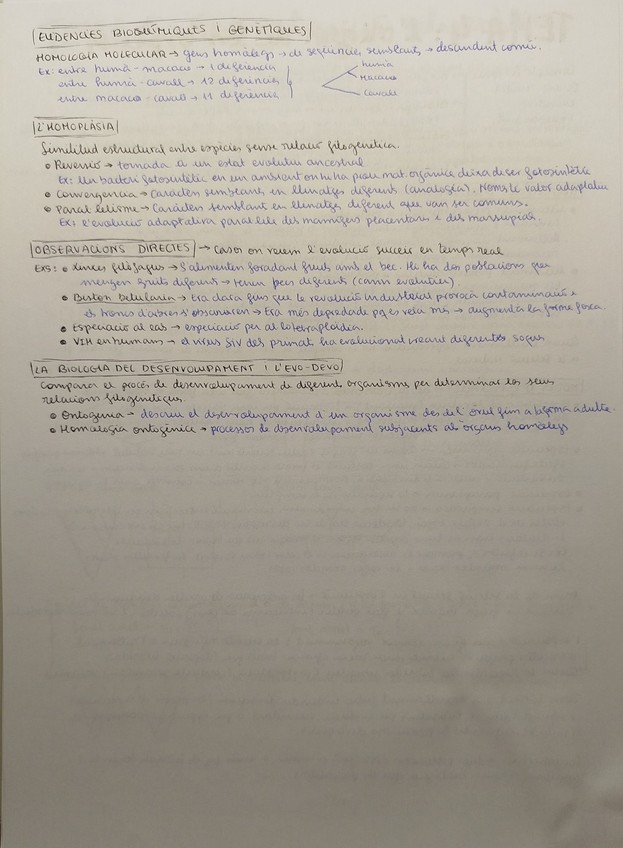 EVIDÈNCIES BIOQUÍMIQUES I GENÈTIQUES
HOMOLOGIA MOLECULAR → gens homòlegs → de seqüències semblants → descendent comú.
Ex: entre humà - macaco → 1 diferència
humà
entre humà - cavall → 12 diferències
macaco
entre macaco - cavall → 11 diferència
cavall
L'HOMOPLÀSIA
Similitud estructural entre espècies sense relació filogenètica.
• Reversió → tornada a un estat evolutiu ancestral.
Ex: Un bacteri fotosintètic en un ambient on hi ha prou mat. orgànica deixa de ser fotosintètic
• Convergència → Caràcters semblants en llinatges diferents (analogia). Només té valor adaptatiu
• Paral·lelisme → Caràcters semblant en llinatges diferent que van ser comuns.
Ex: l'evolució adaptativa paral·lela dels mamífers placentaris i dels marsupials.
OBSERVACIONS DIRECTES → Casos on veiem l'evolució succeir en temps real
EXS: • xinxes filòfagues → S'alimenten foradant fruits amb el bec. Hi ha dos poblacions que
mengen fruits diferents → tenen becs diferents (canvi evolutiu).
• Biston betularia → Era clara fins que la revolució industrial provocà contaminació i
els troncs d'arbres s'obscuriren → Era més depredada pq es veia més → augmenta la forma fosca.
• Especiació al cas → especiació per al·lotetraploïdia.
• VIH en humans → el virus SIV dels primats ha evolucionat creant diferents soques
LA BIOLOGIA DEL DESENVOLUPAMENT I L'EVO-DEVO
Compara el procés de desenvolupament de diferents organismes per determinar les seues
relacions filogenètiques.
• Ontogènia → descriu el desenvolupament d'un organisme des de l'òvul fins a la forma adulta.
• Homologia ontogènica → processos de desenvolupament subjacents als òrgans homòlegs